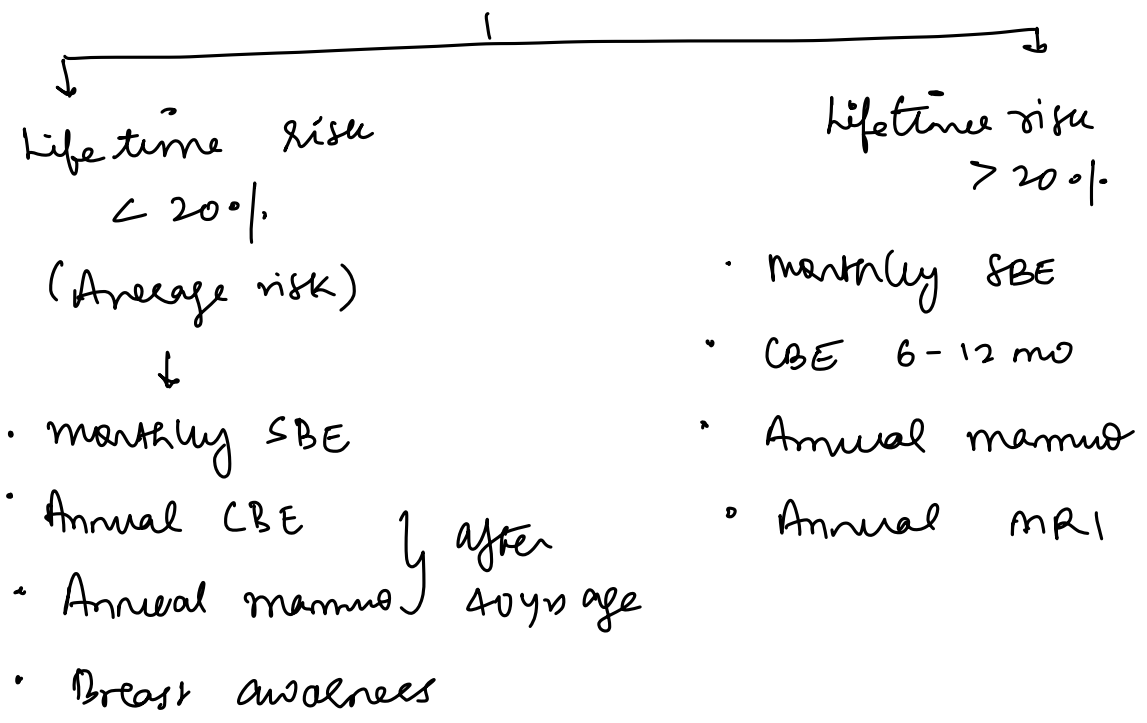 Lifetime risk
< 20%
(Average risk)
↓
· monthly SBE
· Annual CBE
· Annual mammo } after 40 yrs age
· Breast awareness
Lifetime risk
> 20%
· monthly SBE
· CBE 6-12 mo
· Annual mammo
· Annual MRI